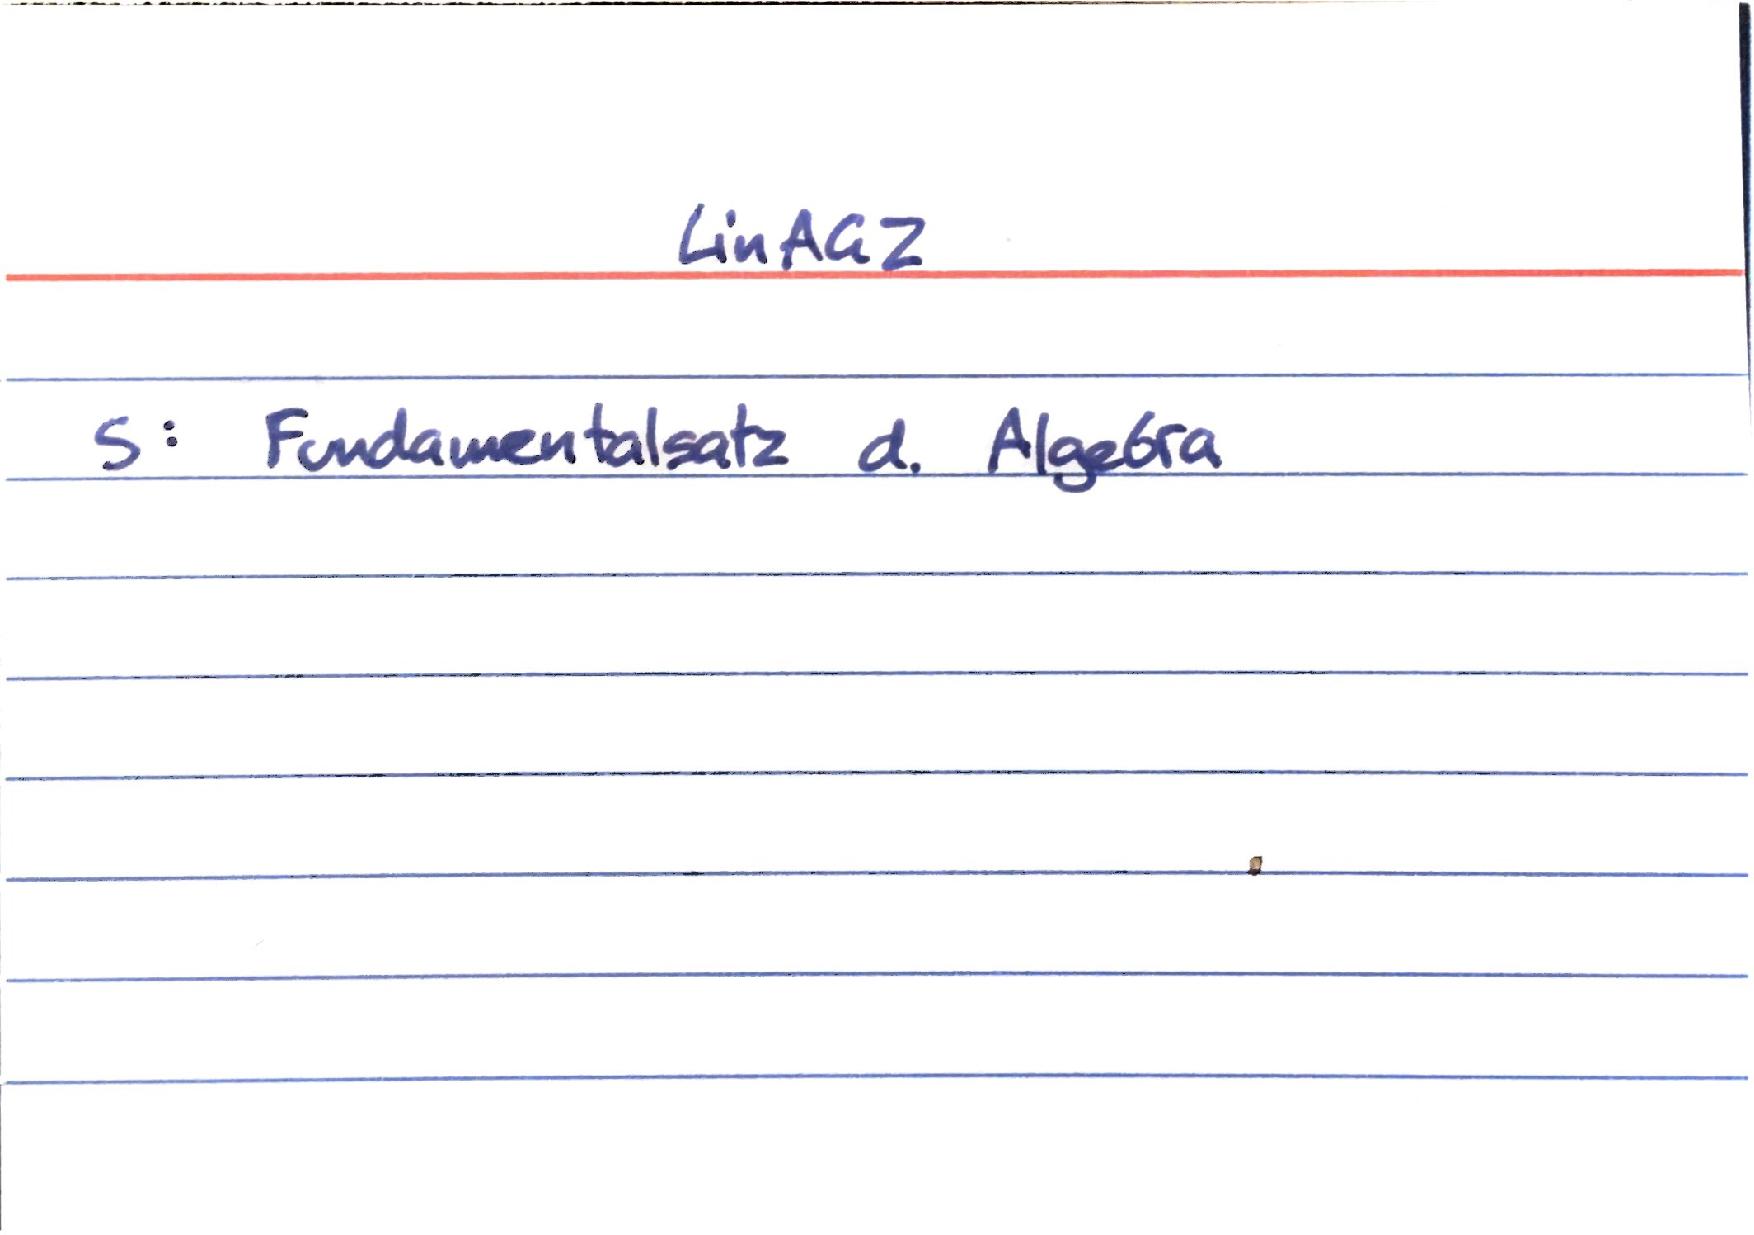 LinAG2
S: Fundamentalsatz d. Algebra